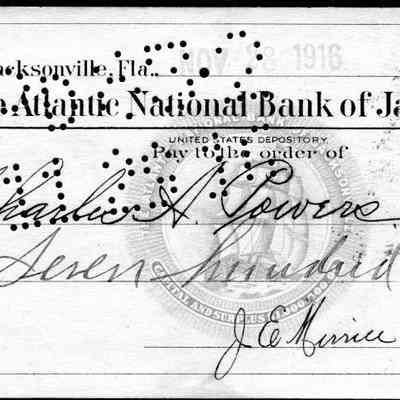 acksonville, Fla., NOV 28 1916
e Atlantic National Bank of Ja
UNITED STATES DEPOSITORY
Pay to the order of
Charles A. Powers
Seven hundred
J. E. Merrill
CAPITAL AND SURPLUS